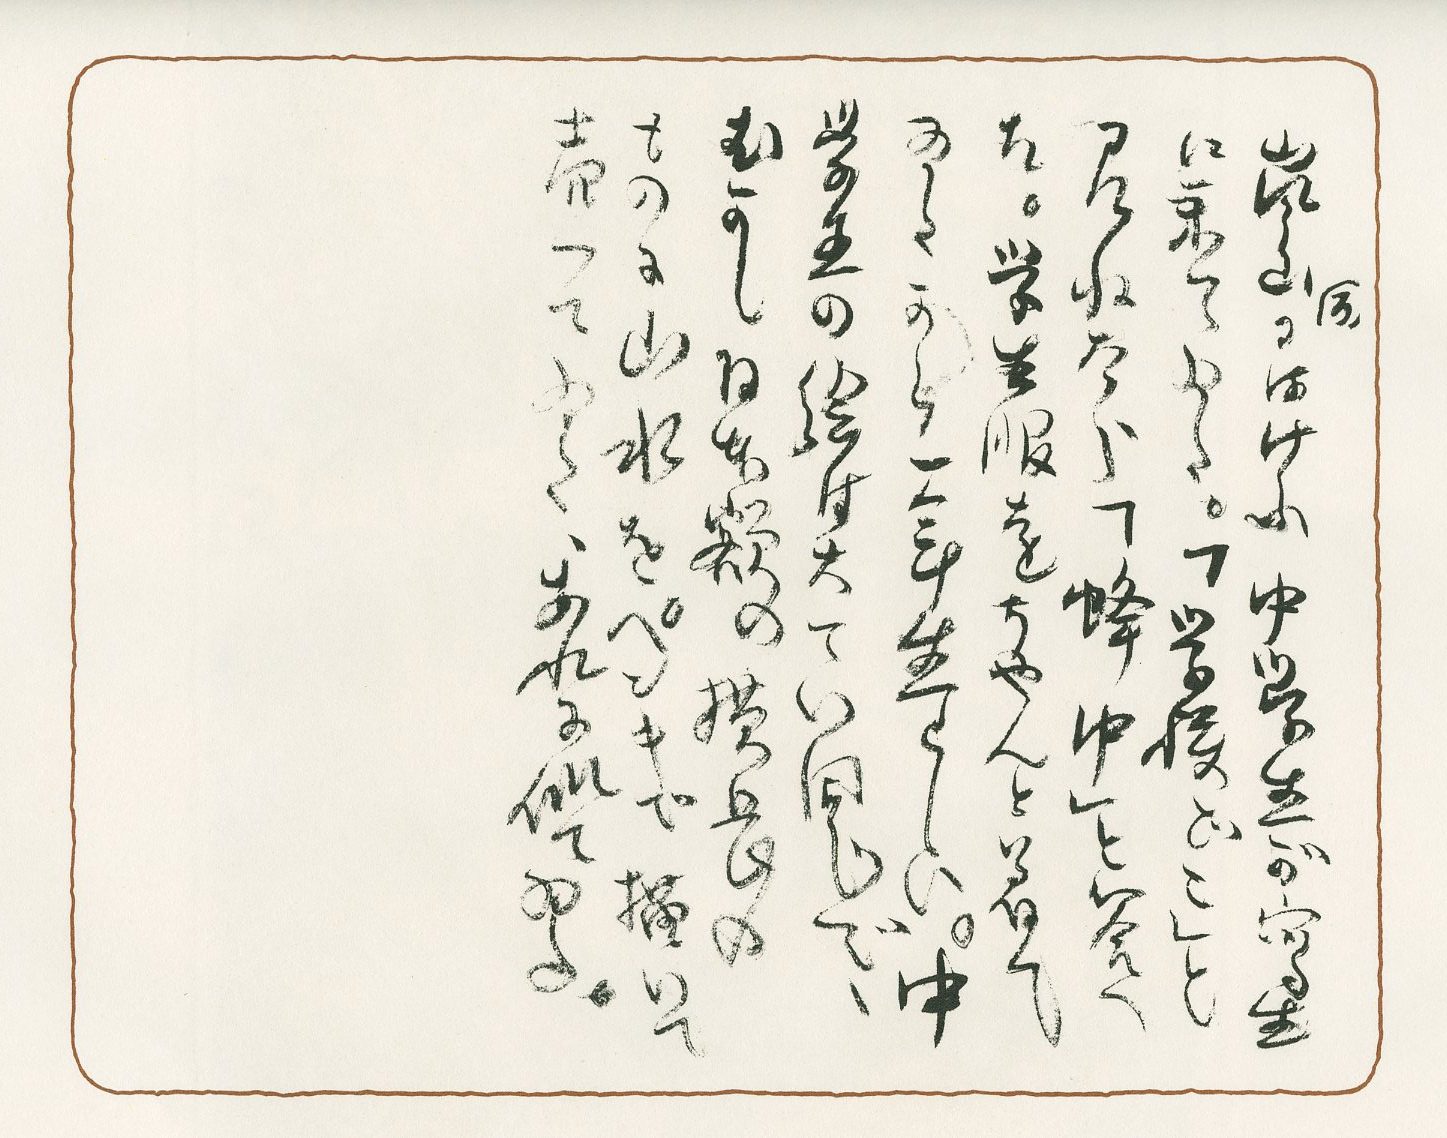 嵐山にはけふ 中学生が写生
に来てゐた。「学校どこ」と
尋ねたら「蜂中」と答へ
た。学生服をちやんと着て
ゐたから一年生らしい。中
学生の絵は大てい同じで、
むかし日本額の横長の
ものに山水をペンキで描いて
売つてゐた、あれに似てゐる。